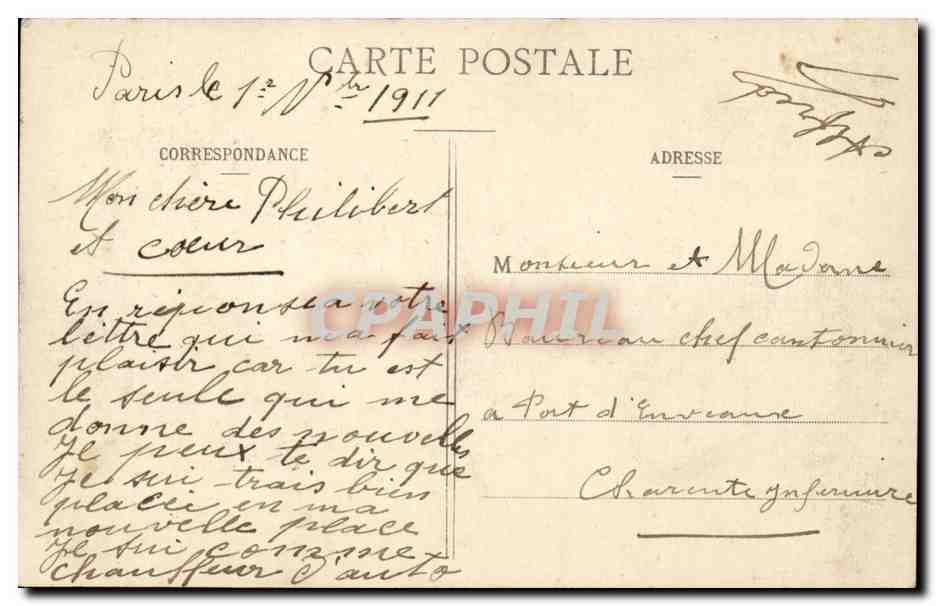 CARTE POSTALE
Paris le 1er Nbre 1911
CORRESPONDANCE
Mon chère Philibert
et cœur
En réponse a votre
lettre qui m a fait
plaisir car tu est
le seule qui me
donne des nouvelles
Je peux te dir que
je sui trais bien
placée en ma
nouvelle place
Je sui comme
chauffeur d'auto
ADRESSE
Monsieur et Madame
chef cantonnier
a Port d'Enveaux
Charente Inferieure
CPAPHIL